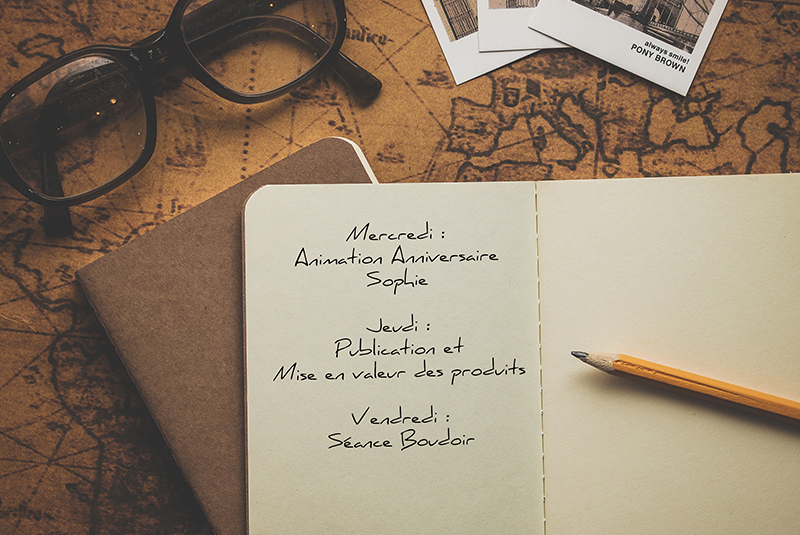 always smile!
PONY BROWN
Mercredi :
Animation Anniversaire
Sophie
Jeudi :
Publication et
Mise en valeur des produits
Vendredi :
Séance Boudoir